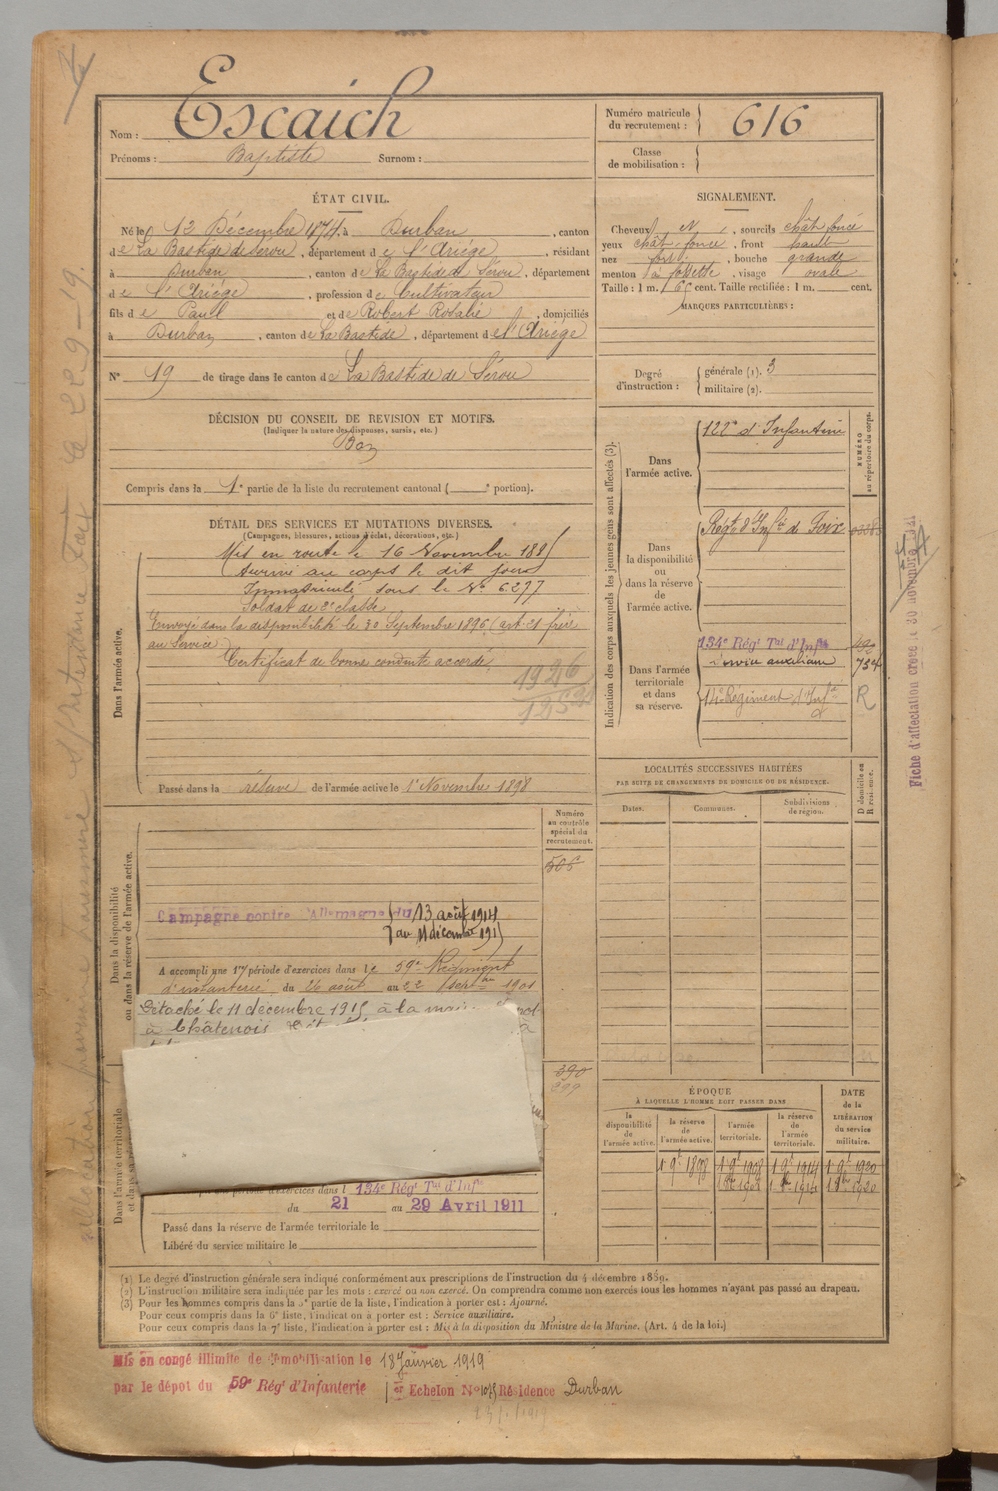 Nom : Escaich
Prénoms : Baptiste Surnom :
Numéro matricule du recrutement : 616
Classe de mobilisation :
ÉTAT CIVIL.
Né le 12 Décembre 1874, à Durban, canton
de La Bastide de Serou, département de l'Ariége, résidant
à Durban, canton de La Bastide de Sérou, département
de l'Ariége, profession de Cultivateur
fils de Paul et de Robert Rosalie, domiciliés
à Durban, canton de La Bastide, département de l'Ariége
N° 19 de tirage dans le canton de La Bastide de Sérou
SIGNALEMENT.
Cheveux N, sourcils chât foncé
yeux chât. foncé, front haut
nez fort, bouche grande
menton à fossette, visage ovale
Taille : 1 m. 66 cent. Taille rectifiée : 1 m. cent.
MARQUES PARTICULIÈRES :
Degré d'instruction : générale (1). 3
militaire (2).
DÉCISION DU CONSEIL DE REVISION ET MOTIFS.
(Indiquer la nature des dispenses, sursis, etc.)
Bon
Compris dans la 1e partie de la liste du recrutement cantonal ( e portion).
DÉTAIL DES SERVICES ET MUTATIONS DIVERSES.
(Campagnes, blessures, actions d'éclat, décorations, etc.)
Dans l'armée active.
Mis en route le 16 Novembre 1895
Arrivé au corps le dit jour
Immatriculé sous le N° 6277
Soldat de 2e classe
Envoyé dans la disponibilité le 30 Septembre 1896 (art 21 frère
au Service)
Certificat de bonne conduite accordé
1926
Passé dans la réserve de l'armée active le 1er Novembre 1898
Indication des corps auxquels les jeunes gens sont affectés (3).
NUMÉRO au répertoire du corps.
Dans l'armée active.
122e d'Infanterie
Dans la disponibilité ou dans la réserve de l'armée active.
Régt d'Infie de Foix
Dans l'armée territoriale et dans sa réserve.
134e Régt Tal d'Infie
Service auxiliaire
14e Régiment d'Infie
R
LOCALITÉS SUCCESSIVES HABITÉES
PAR SUITE DE CHANGEMENTS DE DOMICILE OU DE RÉSIDENCE.
Dates. Communes. Subdivisions de région. D domicile ou R résidence.
Dans la disponibilité ou dans la réserve de l'armée active.
Numéro au contrôle spécial du recrutement.
506
Campagne contre l'Allemagne du 13 août 1914
au 11 décembre 1915
A accompli une 1re période d'exercices dans le 59e Régiment
d'infanterie du 26 août au 22 Septbre 1901
Détaché le 11 décembre 1915 à la
à Châtenois
390
299
Dans l'armée territoriale et dans sa réserve
période d'exercices dans l 134e Régt Tal d'Infie
du 21 au 29 Avril 1911
Passé dans la réserve de l'armée territoriale le
Libéré du service militaire le
ÉPOQUE
À LAQUELLE L'HOMME DOIT PASSER DANS
la disponibilité de l'armée active. la réserve de l'armée active. l'armée territoriale. la réserve de l'armée territoriale. DATE de la LIBÉRATION du service militaire.
1 9e 1898 1 9e 1908 1 9e 1914 1 9e 1920
(1) Le degré d'instruction générale sera indiqué conformément aux prescriptions de l'instruction du 4 décembre 1889.
(2) L'instruction militaire sera indiquée par les mots : exercé ou non exercé. On comprendra comme non exercés tous les hommes n'ayant pas passé au drapeau.
(3) Pour les hommes compris dans la 5e partie de la liste, l'indication à porter est : Ajourné.
Pour ceux compris dans la 6e liste, l'indication à porter est : Service auxiliaire.
Pour ceux compris dans la 7e liste, l'indication à porter est : Mis à la disposition du Ministre de la Marine. (Art. 4 de la loi.)
Mis en congé illimité de démobilisation le 18 Janvier 1919
par le dépôt du 59e Régt d'Infanterie 1er Echelon N° 1075 Résidence Durban